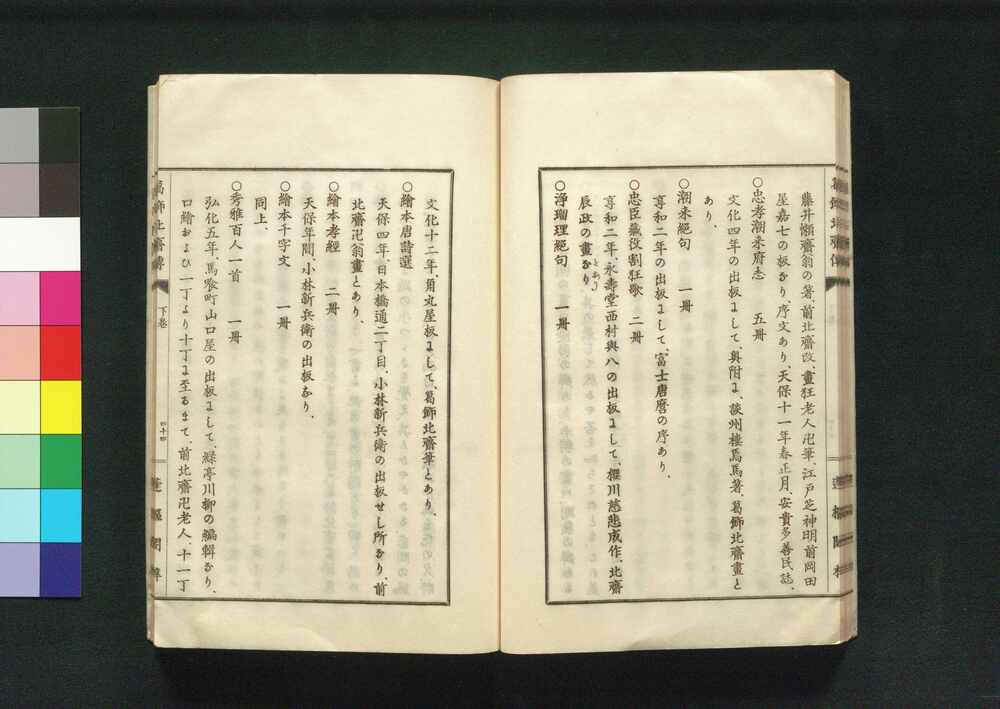 藤井懶齋翁の著、前北齋改、畫狂老人卍筆、江戸芝神明前岡田
屋嘉七の板なり、序文あり、天保十一年春正月、安貴多善民誌、
〇忠孝潮来府志　五冊
文化四年の出板にして、奥附に、談州樓焉馬著、葛飾北齋畫と
あり、
〇潮来絶句　一冊
享和二年の出板にして、富士唐麿の序あり、
〇忠臣藏役割狂歌　二冊
享和二年、永壽堂西村與八の出板にして、櫻川慈悲成作、北齋
辰政の畫なり、
とあり
〇浄瑠理絶句　一冊
文化十二年、角丸屋板にして、葛飾北齋筆とあり、
〇繪本唐詩選
天保四年、日本橋通二丁目、小林新兵衛の出板せし所なり、前
北齋卍翁畫とあり、
〇繪本孝經　二冊
天保年間、小林新兵衛の出板なり、
〇繪本千字文　一冊
同上、
〇秀雅百人一首　一冊
弘化五年、馬喰町山口屋の出板にして、緑亭川柳の編輯なり、
口繪および一丁より十丁に至るまて、前北齋卍老人、十一丁
葛飾北齋傳
下巻
四十四
蓬樞閣梓